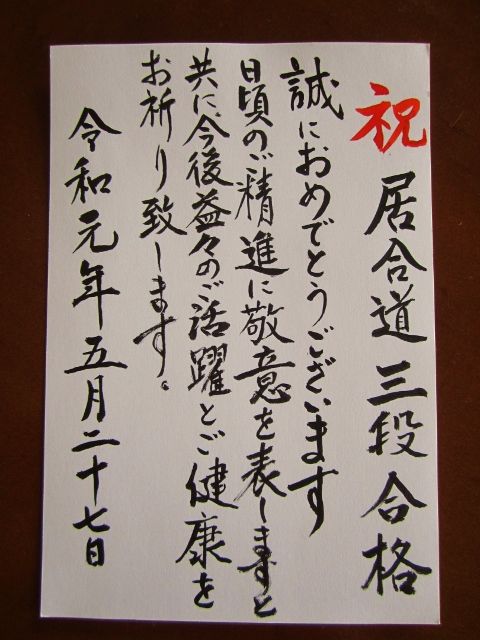 祝 居合道三段合格
誠におめでとうございます
日頃のご精進に敬意を表しますと
共に今後益々のご活躍とご健康を
お祈り致します。
令和元年五月二十七日